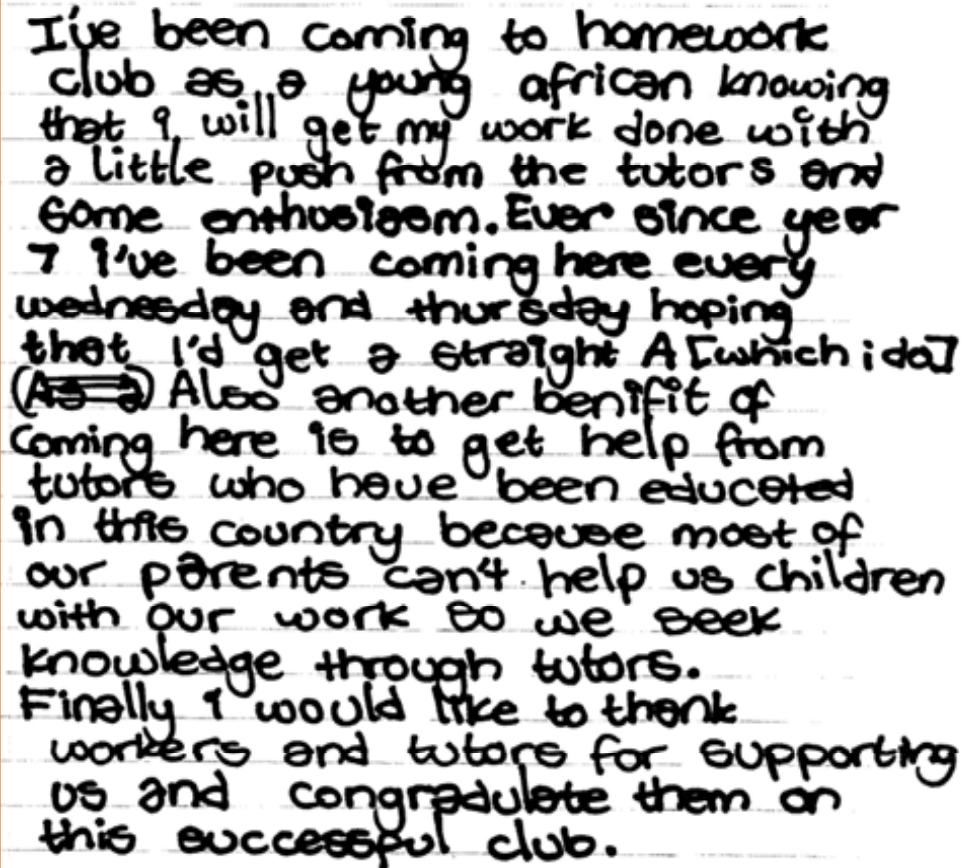 I've been coming to homework
club as a young african knowing
that i will get my work done with
a little push from the tutors and
some enthusiasm. Ever since year
7 i've been coming here every
wednesday and thursday hoping
that I'd get a straight A [which i do]
(As a) Also another benifit of
coming here is to get help from
tutors who have been educated
in this country because most of
our parents can't help us children
with our work so we seek
knowledge through tutors.
Finally i would like to thank
workers and tutors for supporting
us and congradulate them on
this successful club.